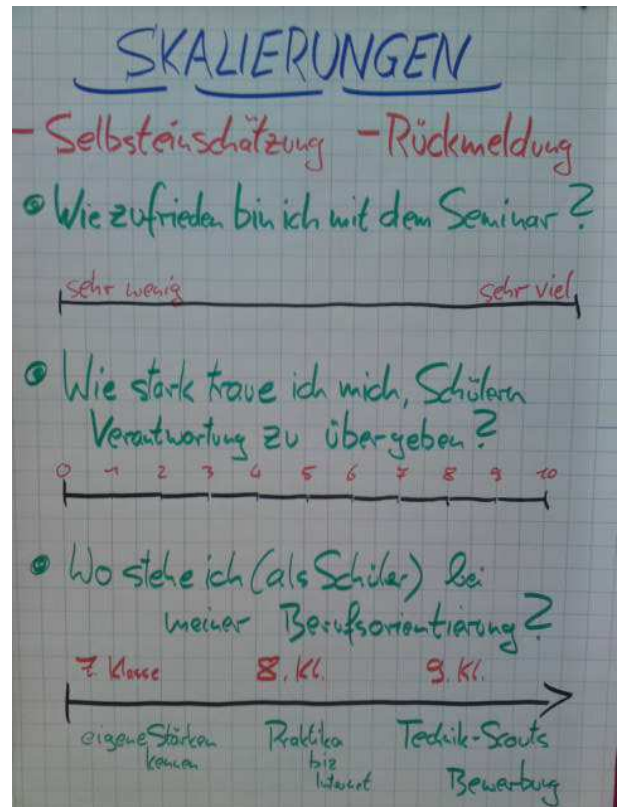 SKALIERUNGEN
- Selbsteinschätzung - Rückmeldung
• Wie zufrieden bin ich mit dem Seminar?
sehr wenig sehr viel
• Wie stark traue ich mich, Schülern
Verantwortung zu übergeben?
0 1 2 3 4 5 6 7 8 9 10
• Wo stehe ich (als Schüler) bei
meiner Berufsorientierung?
7. Klasse 8. Kl. 9. Kl.
eigene Stärken Praktika Technik-Scouts
kennen biz Bewerbung
Internet